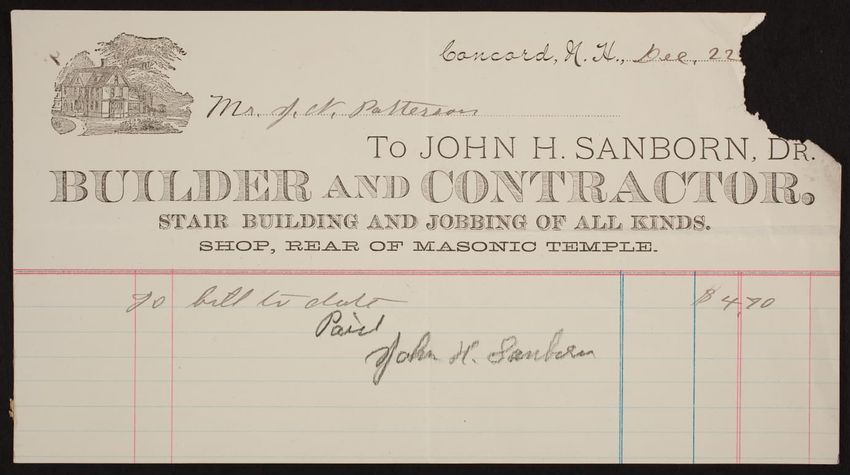 Concord, N. H., Dec. 22
Mr. J. N. Patterson
To JOHN H. SANBORN, DR.
BUILDER AND CONTRACTOR,
STAIR BUILDING AND JOBBING OF ALL KINDS.
SHOP, REAR OF MASONIC TEMPLE.
To bill to date $4.70
Paid
John H. Sanborn